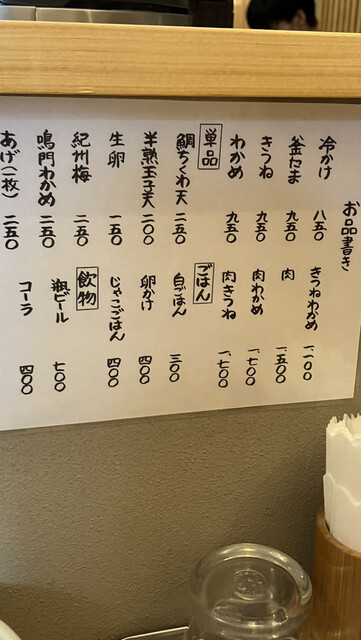 お品書き
冷かけ 八五〇
釜たま 九五〇
きつね 九五〇
わかめ 九五〇
単品
鯛ちくわ天 二五〇
半熟玉子天 二〇〇
生卵 一五〇
紀州梅 二五〇
鳴門わかめ 二五〇
あげ(一枚) 二五〇
きつねわかめ 一、一〇〇
肉 一、五〇〇
肉わかめ 一、七〇〇
肉きつね 一、七〇〇
ごはん
白ごはん 三〇〇
卵かけ 四〇〇
じゃこごはん 四〇〇
飲物
瓶ビール 七〇〇
コーラ 四〇〇